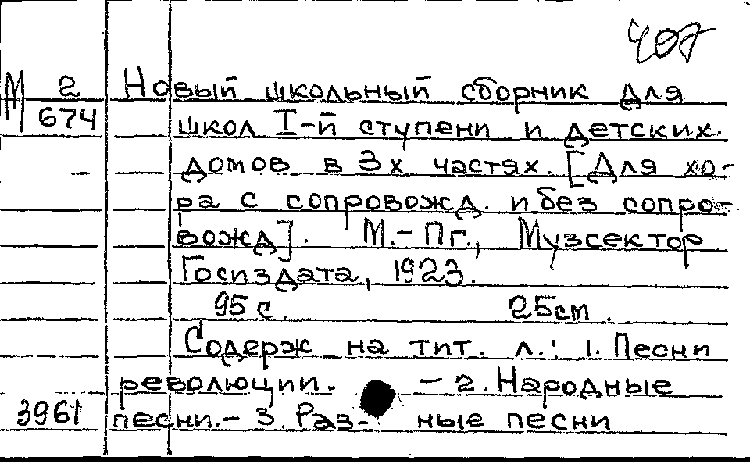 407
М 2 Новый школьный сборник для
674 школ I-й ступени и детских
домов в 3х частях. [Для хо-
ра с сопровожд. и без сопро-
вожд]. М.-Пг., Музсектор
Госиздата, 1923.
95 с. 25см.
Содерж на тит. л.: 1. Песни
революции. - 2. Народные
3961 песни. - 3. Раз- ные песни